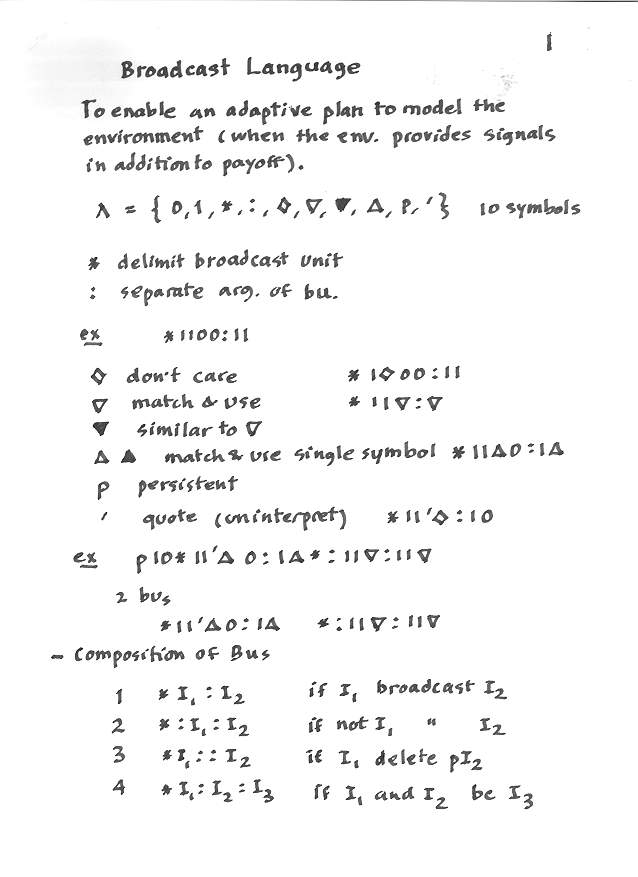 1
Broadcast Language
To enable an adaptive plan to model the
environment (when the env. provides signals
in addition to payoff).
λ = { 0,1,*,:,◊,▽,▼,Δ,p,'} 10 symbols
* delimit broadcast unit
: separate arg. of bu.
ex *1100:11
◊ don't care *1◊00:11
▽ match & use *11▽:▽
▼ similar to ▽
Δ ▲ match & use single symbol *11Δ0:1Δ
p persistent
' quote (uninterpret) *11'◊:10
ex p10*11'Δ0:1Δ*:11▽:11▽
2 bus
*11'Δ0:1Δ *:11▽:11▽
- Composition of Bus
1 *I₁:I₂ if I₁ broadcast I₂
2 *:I₁:I₂ if not I₁ " I₂
3 *I₁::I₂ if I₁ delete pI₂
4 *I₁:I₂:I₃ if I₁ and I₂ bc I₃